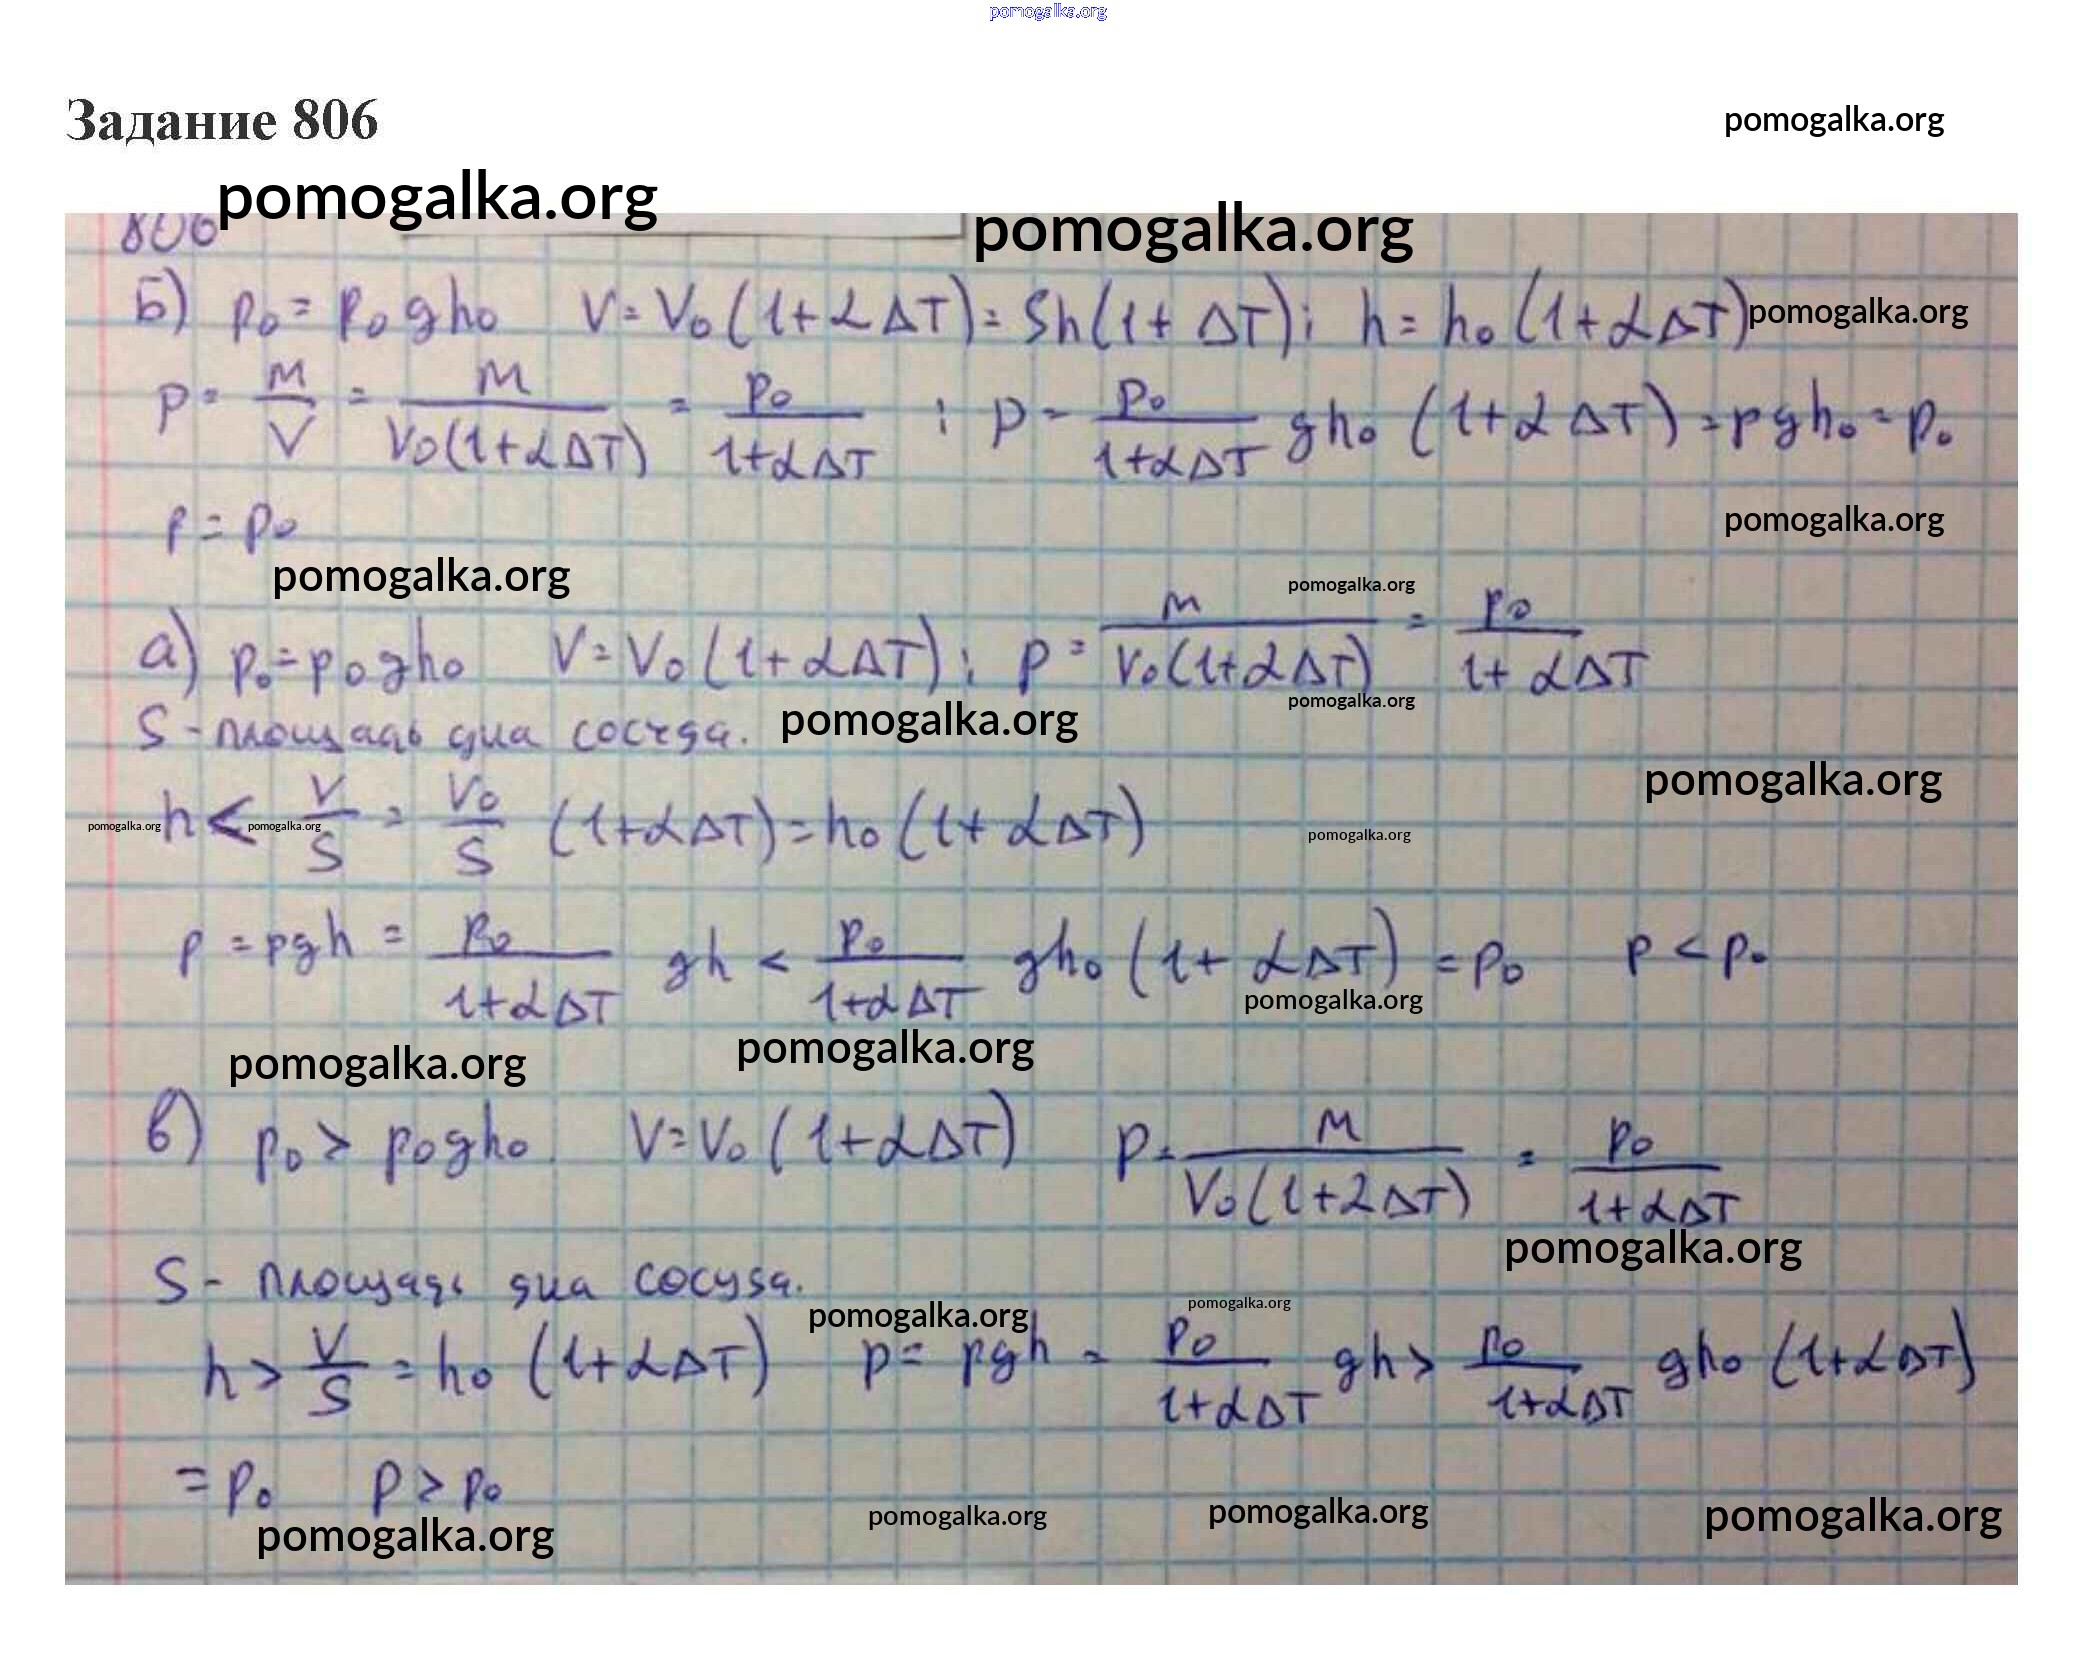 pomogalka.org
Задание 806 pomogalka.org
pomogalka.org
806 pomogalka.org
Б) p₀ = p₀gh₀ V = V₀(1+αΔT) = Sh(1+ΔT); h = h₀(1+αΔT) pomogalka.org
p = m/V = m/V₀(1+αΔT) = p₀/1+αΔT ; p = p₀/1+αΔT gh₀(1+αΔT) = pgh₀ = p₀
p = p₀ pomogalka.org
pomogalka.org pomogalka.org
а) p₀ = p₀gh₀ V = V₀(1+αΔT); p = m/V₀(1+αΔT) = p₀/1+αΔT
pomogalka.org
S - площадь дна сосуда. pomogalka.org
pomogalka.org
pomogalka.org h < pomogalka.org V/S = V₀/S (1+αΔT) = h₀(1+αΔT) pomogalka.org
p = pgh = p₀/1+αΔT gh < p₀/1+αΔT gh₀(1+αΔT) = p₀ p < p₀
pomogalka.org
pomogalka.org pomogalka.org
в) p₀ > p₀gh₀. V = V₀(1+αΔT) p = m/V₀(1+2ΔT) = p₀/1+αΔT
pomogalka.org
S - площадь дна сосуда.
pomogalka.org pomogalka.org
h > V/S = h₀(1+αΔT) p = pgh = p₀/1+αΔT gh > p₀/1+αΔT gh₀(1+αΔT)
= p₀ p > p₀
pomogalka.org pomogalka.org pomogalka.org pomogalka.org